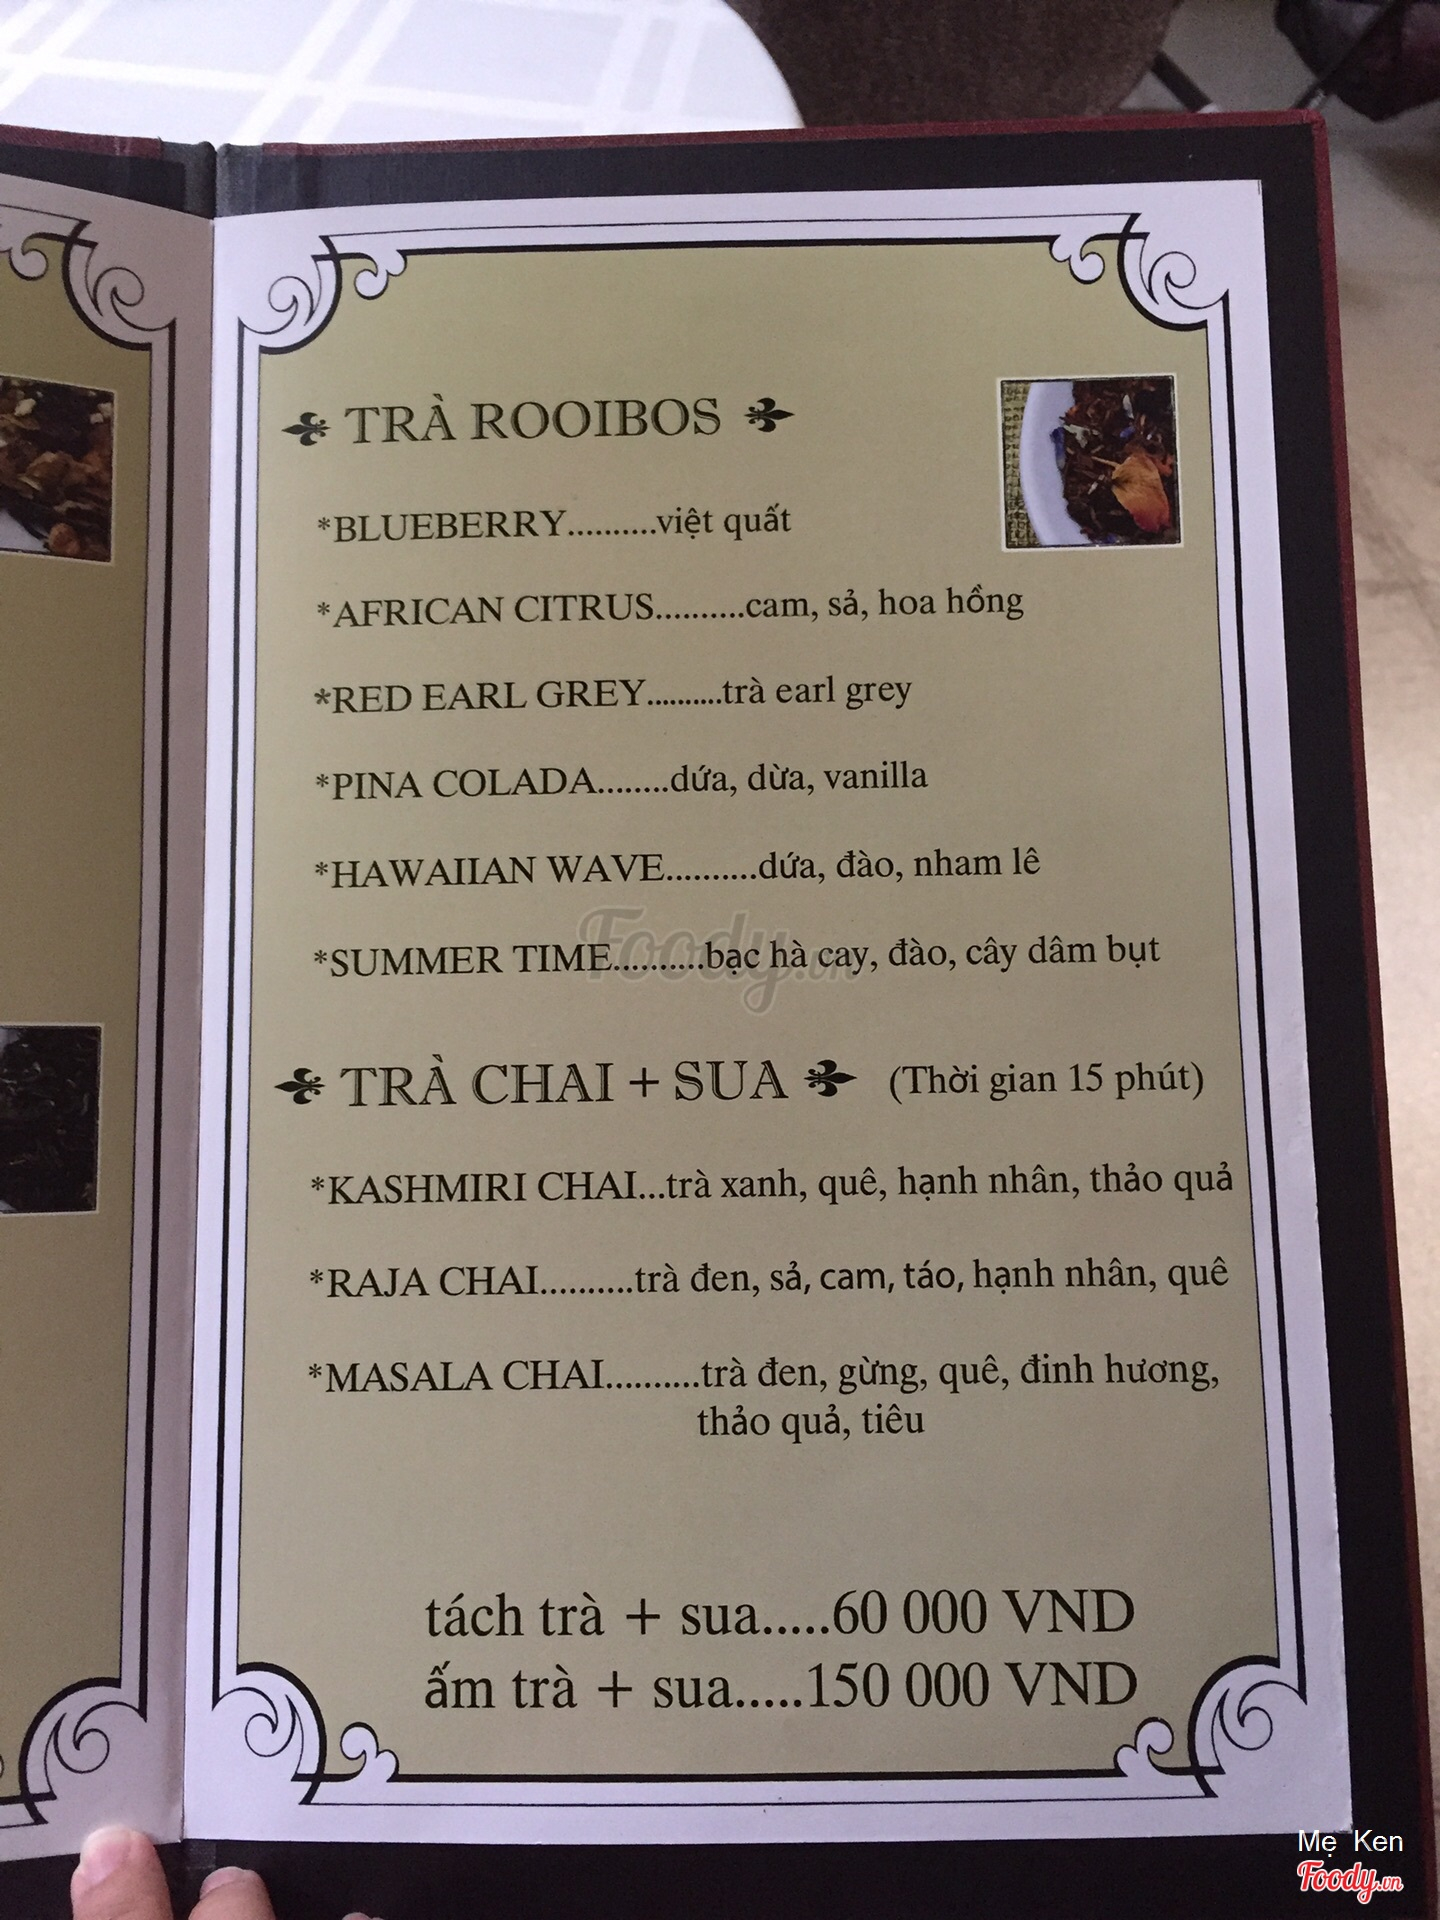 TRÀ ROOIBOS
*BLUEBERRY..........việt quất
*AFRICAN CITRUS..........cam, sả, hoa hồng
*RED EARL GREY..........trà earl grey
*PINA COLADA........dứa, dừa, vanilla
*HAWAIIAN WAVE..........dứa, đào, nham lê
*SUMMER TIME..........bạc hà cay, đào, cây dâm bụt
Foody.vn
TRÀ CHAI + SUA (Thời gian 15 phút)
*KASHMIRI CHAI...trà xanh, quê, hạnh nhân, thảo quả
*RAJA CHAI..........trà đen, sả, cam, táo, hạnh nhân, quê
*MASALA CHAI..........trà đen, gừng, quê, đinh hương,
thảo quả, tiêu
tách trà + sua.....60 000 VND
ấm trà + sua.....150 000 VND
Mẹ Ken
Foody.vn